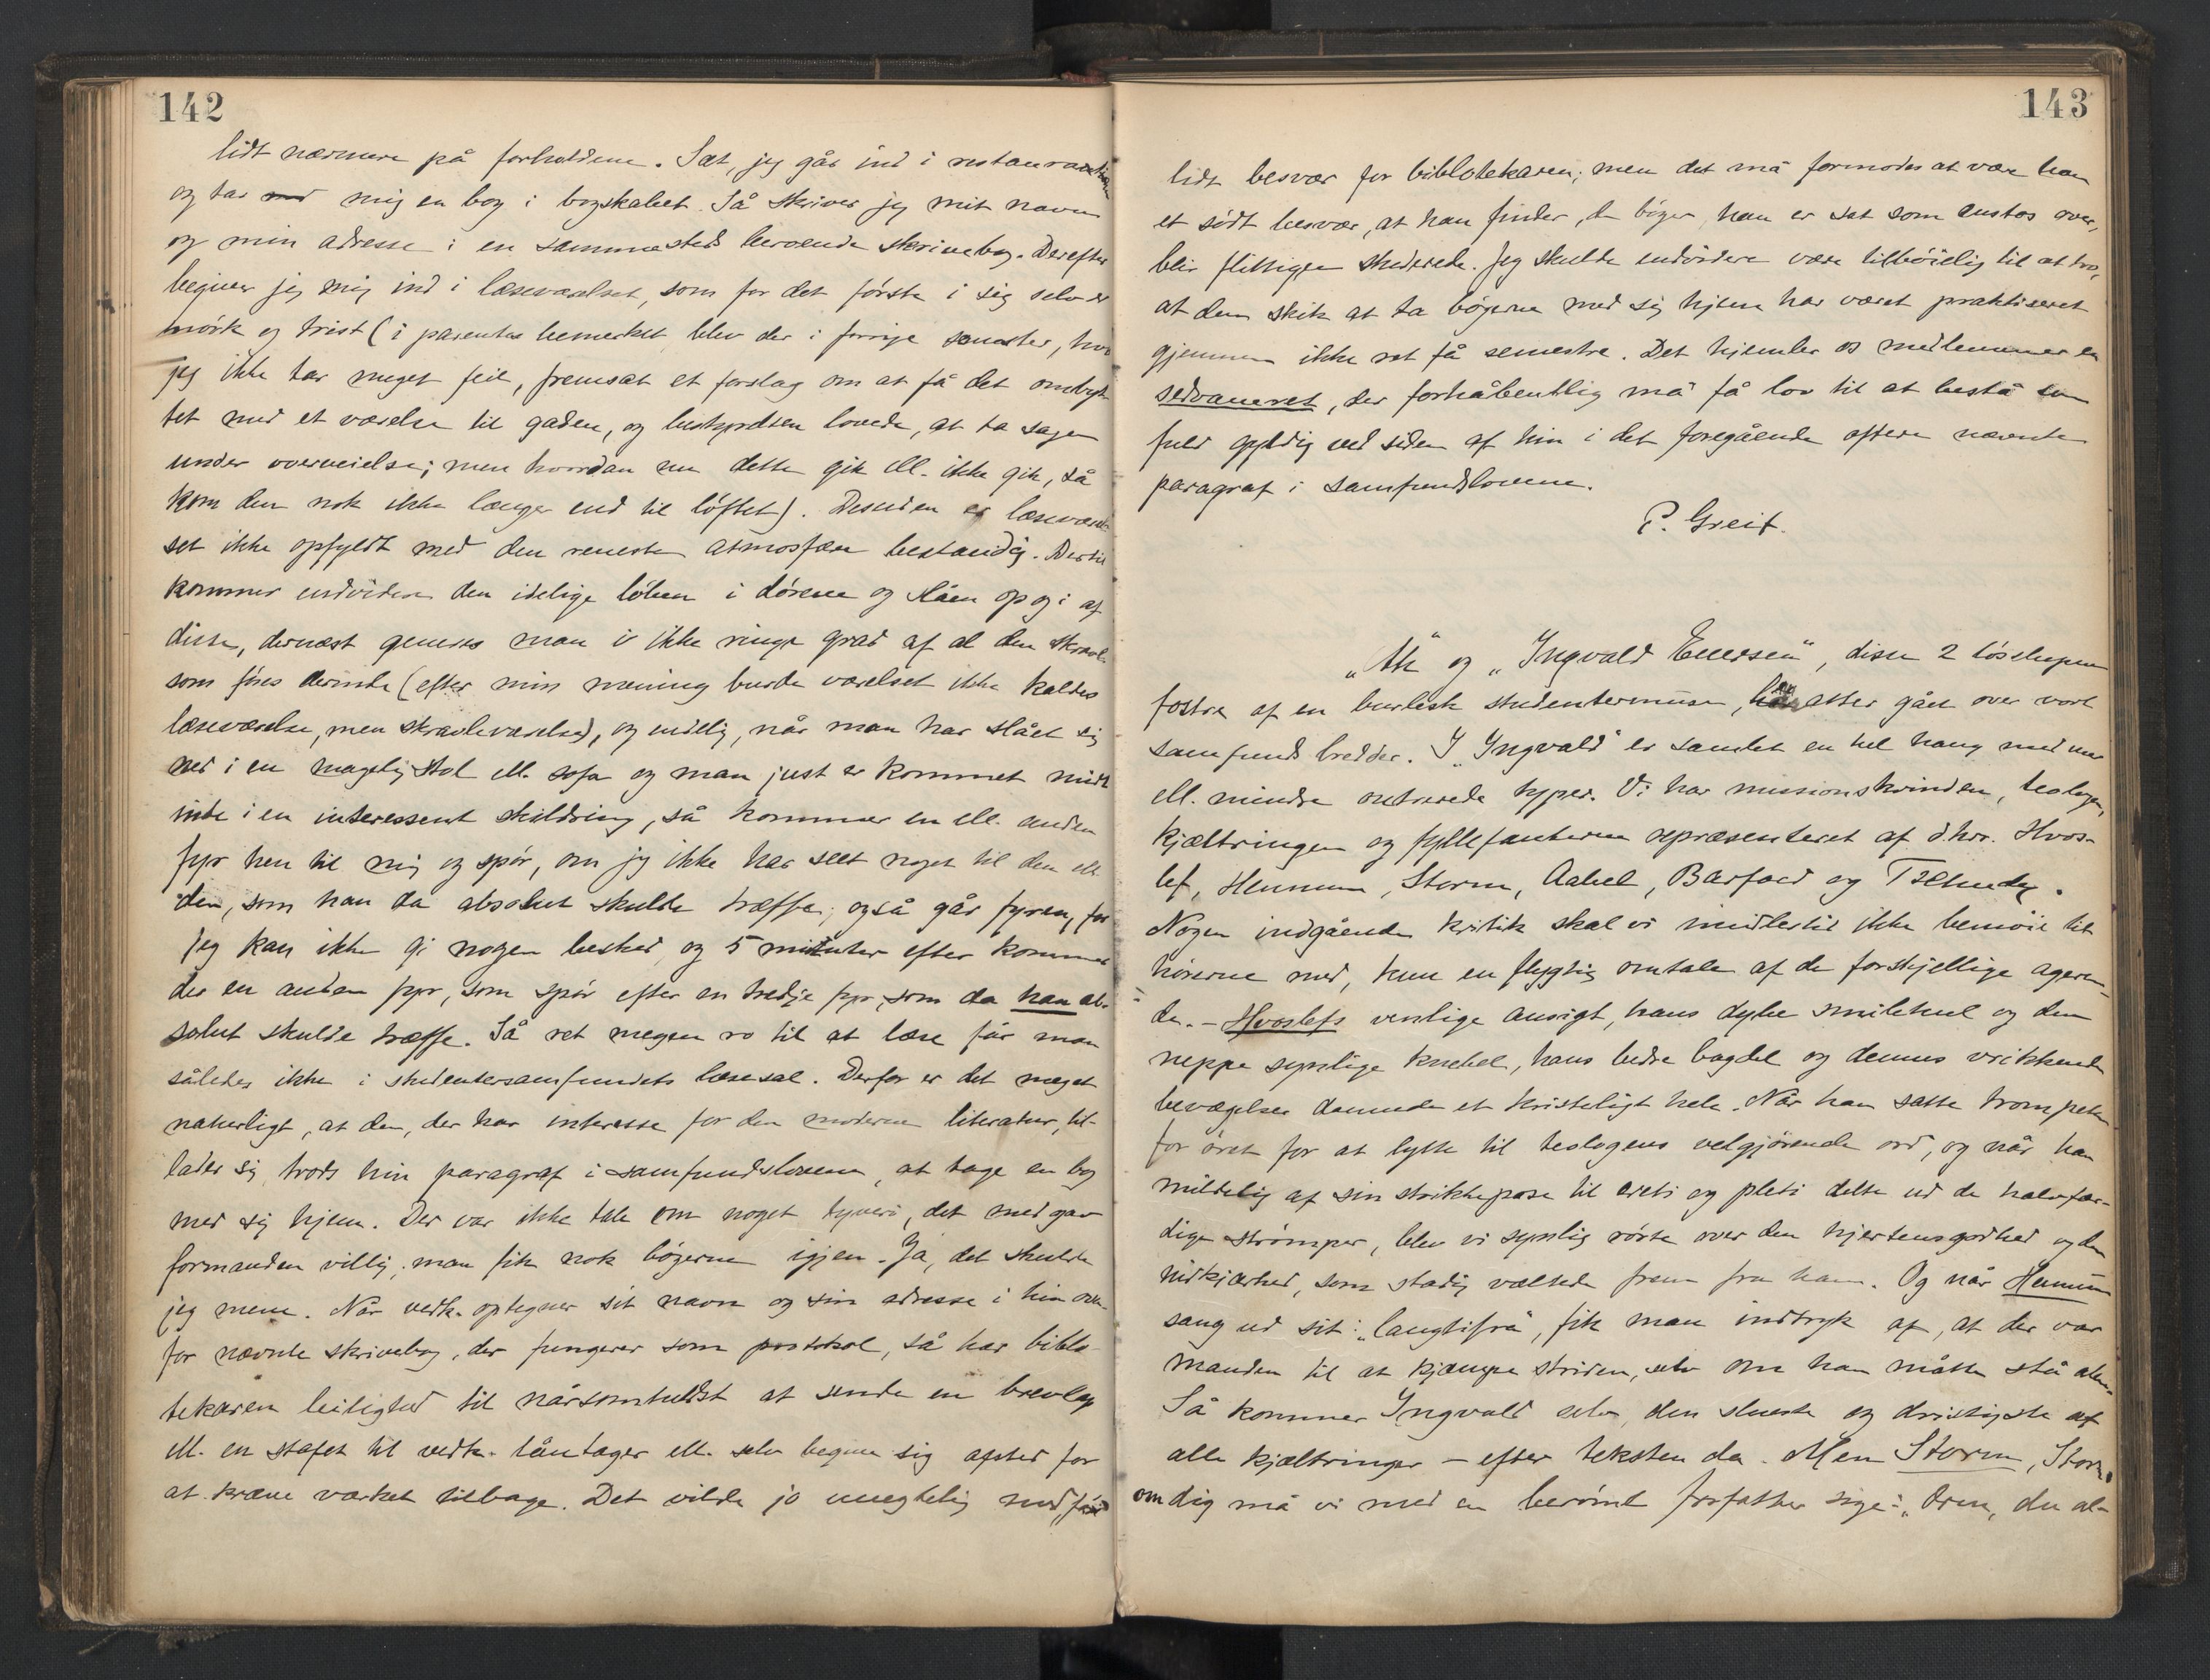 142
lidt nærmere på forholdene. Sæt, jeg går ind i restaurationen
og tar mig en bog i bogskabet. Så skriver jeg mit navn
og min adresse i en sammesteds beroende skrivebog. Derefter
begiver jeg mig ind i læseværelset, som for det første i sig selv er
mørk og trist (i parentes bemerket blev der i forrige semester, hvis
jeg ikke tar meget feil, fremsat et forslag om at få det ombyt-
tet med et værelse til gaden, og bestyrelsen lovede, at ta sagen
under overveielse; men hvordan nu dette gik ell. ikke gik, så
kom den nok ikke længer end til løftet). Desuden er læseværel-
set ikke opfyldt med den reneste atmosfære bestandig. Dertil
kommer endvidere den idelige løben i dørene og slåen op og i af
disse, dernæst generes man i ikke ringe grad af al den skravl
som føres derinde (efter min mening burde værelset ikke kaldes
læseværelse, men skravleværelse), og endelig, når man har slået sig
ned i en magelig stol ell. sofa og man just er kommet midt
inde i en interessent skildring, så kommer en ell. anden
fyr hen til mig og spør, om jeg ikke har seet noget til den ell
den, som han da absolut skulde træffe; også går fyren, for
jeg kan ikke gi nogen besked, og 5 minutter efter kommer
der en anden fyr, som spør efter en tredje fyr, som da han ab-
solut skulde træffe. Så ret megen ro til at læse får man
således ikke i studentersamfundets læsesal. Derfor er det meget
naturligt, at den, der har interesse for den moderne literatur, til-
lader sig trods hin paragraf i samfundslovene, at tage en bog
med sig hjem. Der var ikke tale om noget tyveri, det medgav
formanden villig; man fik nok bøgerne igjen. Ja, det skulde
jeg mene. Når vedk. optegner sit navn og sin adresse i hin oven-
for nævnte skrivebog, der fungerer som protokol, så har biblo-
tekaren leilighed til nårsomhelst at sende en brevlap
ell. en stafet til vedk. låntager ell. selv begive sig afsted for
at kræve værket tilbage. Det vilde jo unegtelig medføre
143
lidt besvær for biblotekaren; men det må formodes at være ham
et sødt besvær, at han finder, de bøger, han er sat som custos over,
blir flittigen studerede. Jeg skulde endvidere være tilbøielig til at tro,
at den skik at ta bøgerne med sig hjem har været praktiseret
gjennem ikke ret få semestre. Det hjemler os medlemmer en
sedvaneret, der forhåbentlig må få lov til at bestå som
fuld gyldig ved siden af hin i det foregående oftere nævnte
paragraf i samfundslovene.
P. Greif.
og "Ingvald Enersen", disse 2 løsslupne
fostre af en burlesk studentermuse, er atter gået over vort
samfunds bredder. I "Ingvald" er samlet en hel haug med mer
ell. mindre outrerede typer. Vi har missionskvinden, teologen,
kjæltringen og fyllefanterne repræsenteret af d.hrr. Hvos-
lef, Hennum, Storm, Aabel, Barfoed og
Nogen indgående kritik skal vi imidlertid ikke bemøie til-
hørerne med, kun en flygtig omtale af de forskjellige ageren-
de. – Hvoslefs venlige ansigt, hans dybe smilehul og den
neppe synlige knebel, hans bedre bagdel og dennes vrikkende
bevægelser dannede et kristeligt hele. Når han satte trompeten
for øret for at lytte til teologens velgjørende ord, og når han
mildelig af sin strikkepose til ereti og pleti delte ud de halvfær-
dige strømper, blev vi synlig rørte over den hjertensgodhed og den
nidkjærhed, som stadig vældede frem fra ham. Og når Hennum
sang ud sit: "langtifra", fik man indtryk af, at der var
manden til at kjæmpe striden, selv om han måtte stå alene.
Så kommer Ingvald selv, den slueste og dristigste af
alle kjæltringer – efter teksten da. Men Storm, Storm,
om dig må vi med en berømt forfatter sige: "Orm, du al-